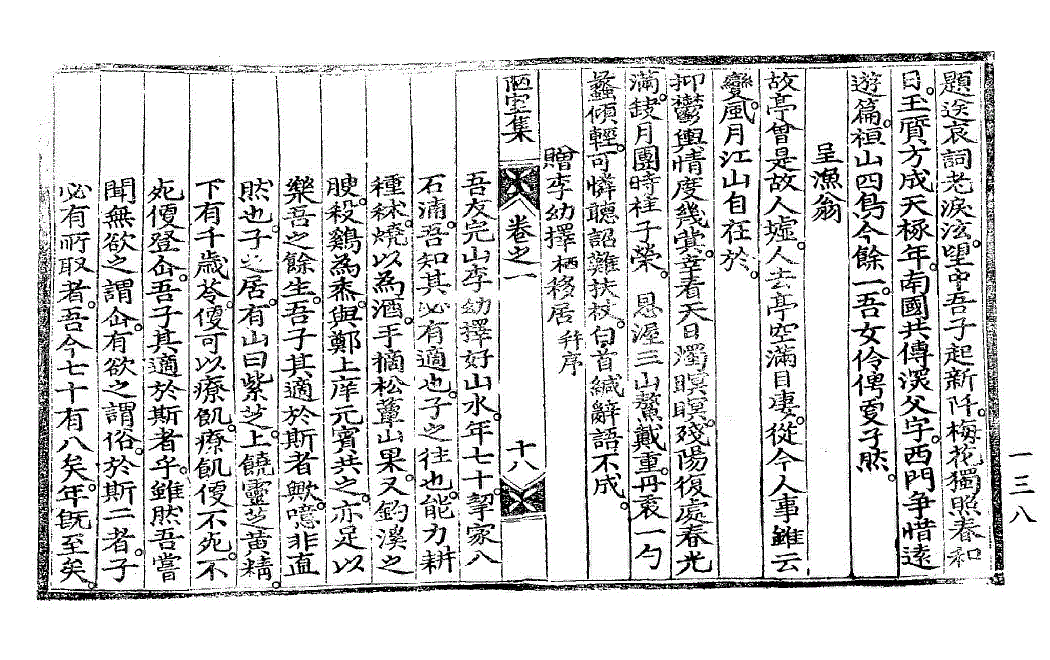 題送哀詞老淚泫望中吾子起新阡梅花獨照春和
日玉質方成天椓年南國共傳溪父字西門爭惜遠
遊篇桓山四鳥今餘一吾女伶俜憂子然
呈漁翁
故亭曾是故人墟人去亭空滿目凄從今人事雖云
變風月江山自在於
抑鬱輿情度幾冀幸看天日燭瞑瞑殘陽復處春光
滿缺月團時桂子榮恩渥三山鰲戴重丹衷一勺
蠡傾輕可憐聽詔難扶杖白首緘辭語不成
贈李幼擇栖移居幷序
陋室集 卷之一 十八
吾友完山李幼擇好山水年七十挈家八
石浦吾知其必有適也子之往也能力耕
種秫燒以爲酒手摘松蕈山果又釣溪之
腴殺鷄爲黍與鄭上庠元賓共之亦足以
樂吾之餘生吾子其適於斯者歟噫非直
然也子之居有山曰紫芝上饒靈芝黃精
下有千歲苓便可以療飢療飢便不死不
死便登仚吾子其適於斯者乎雖然吾嘗
聞無欲之謂仚有欲之謂俗於斯二者子
必有所取者吾今七十有八矣年旣至矣
一三八